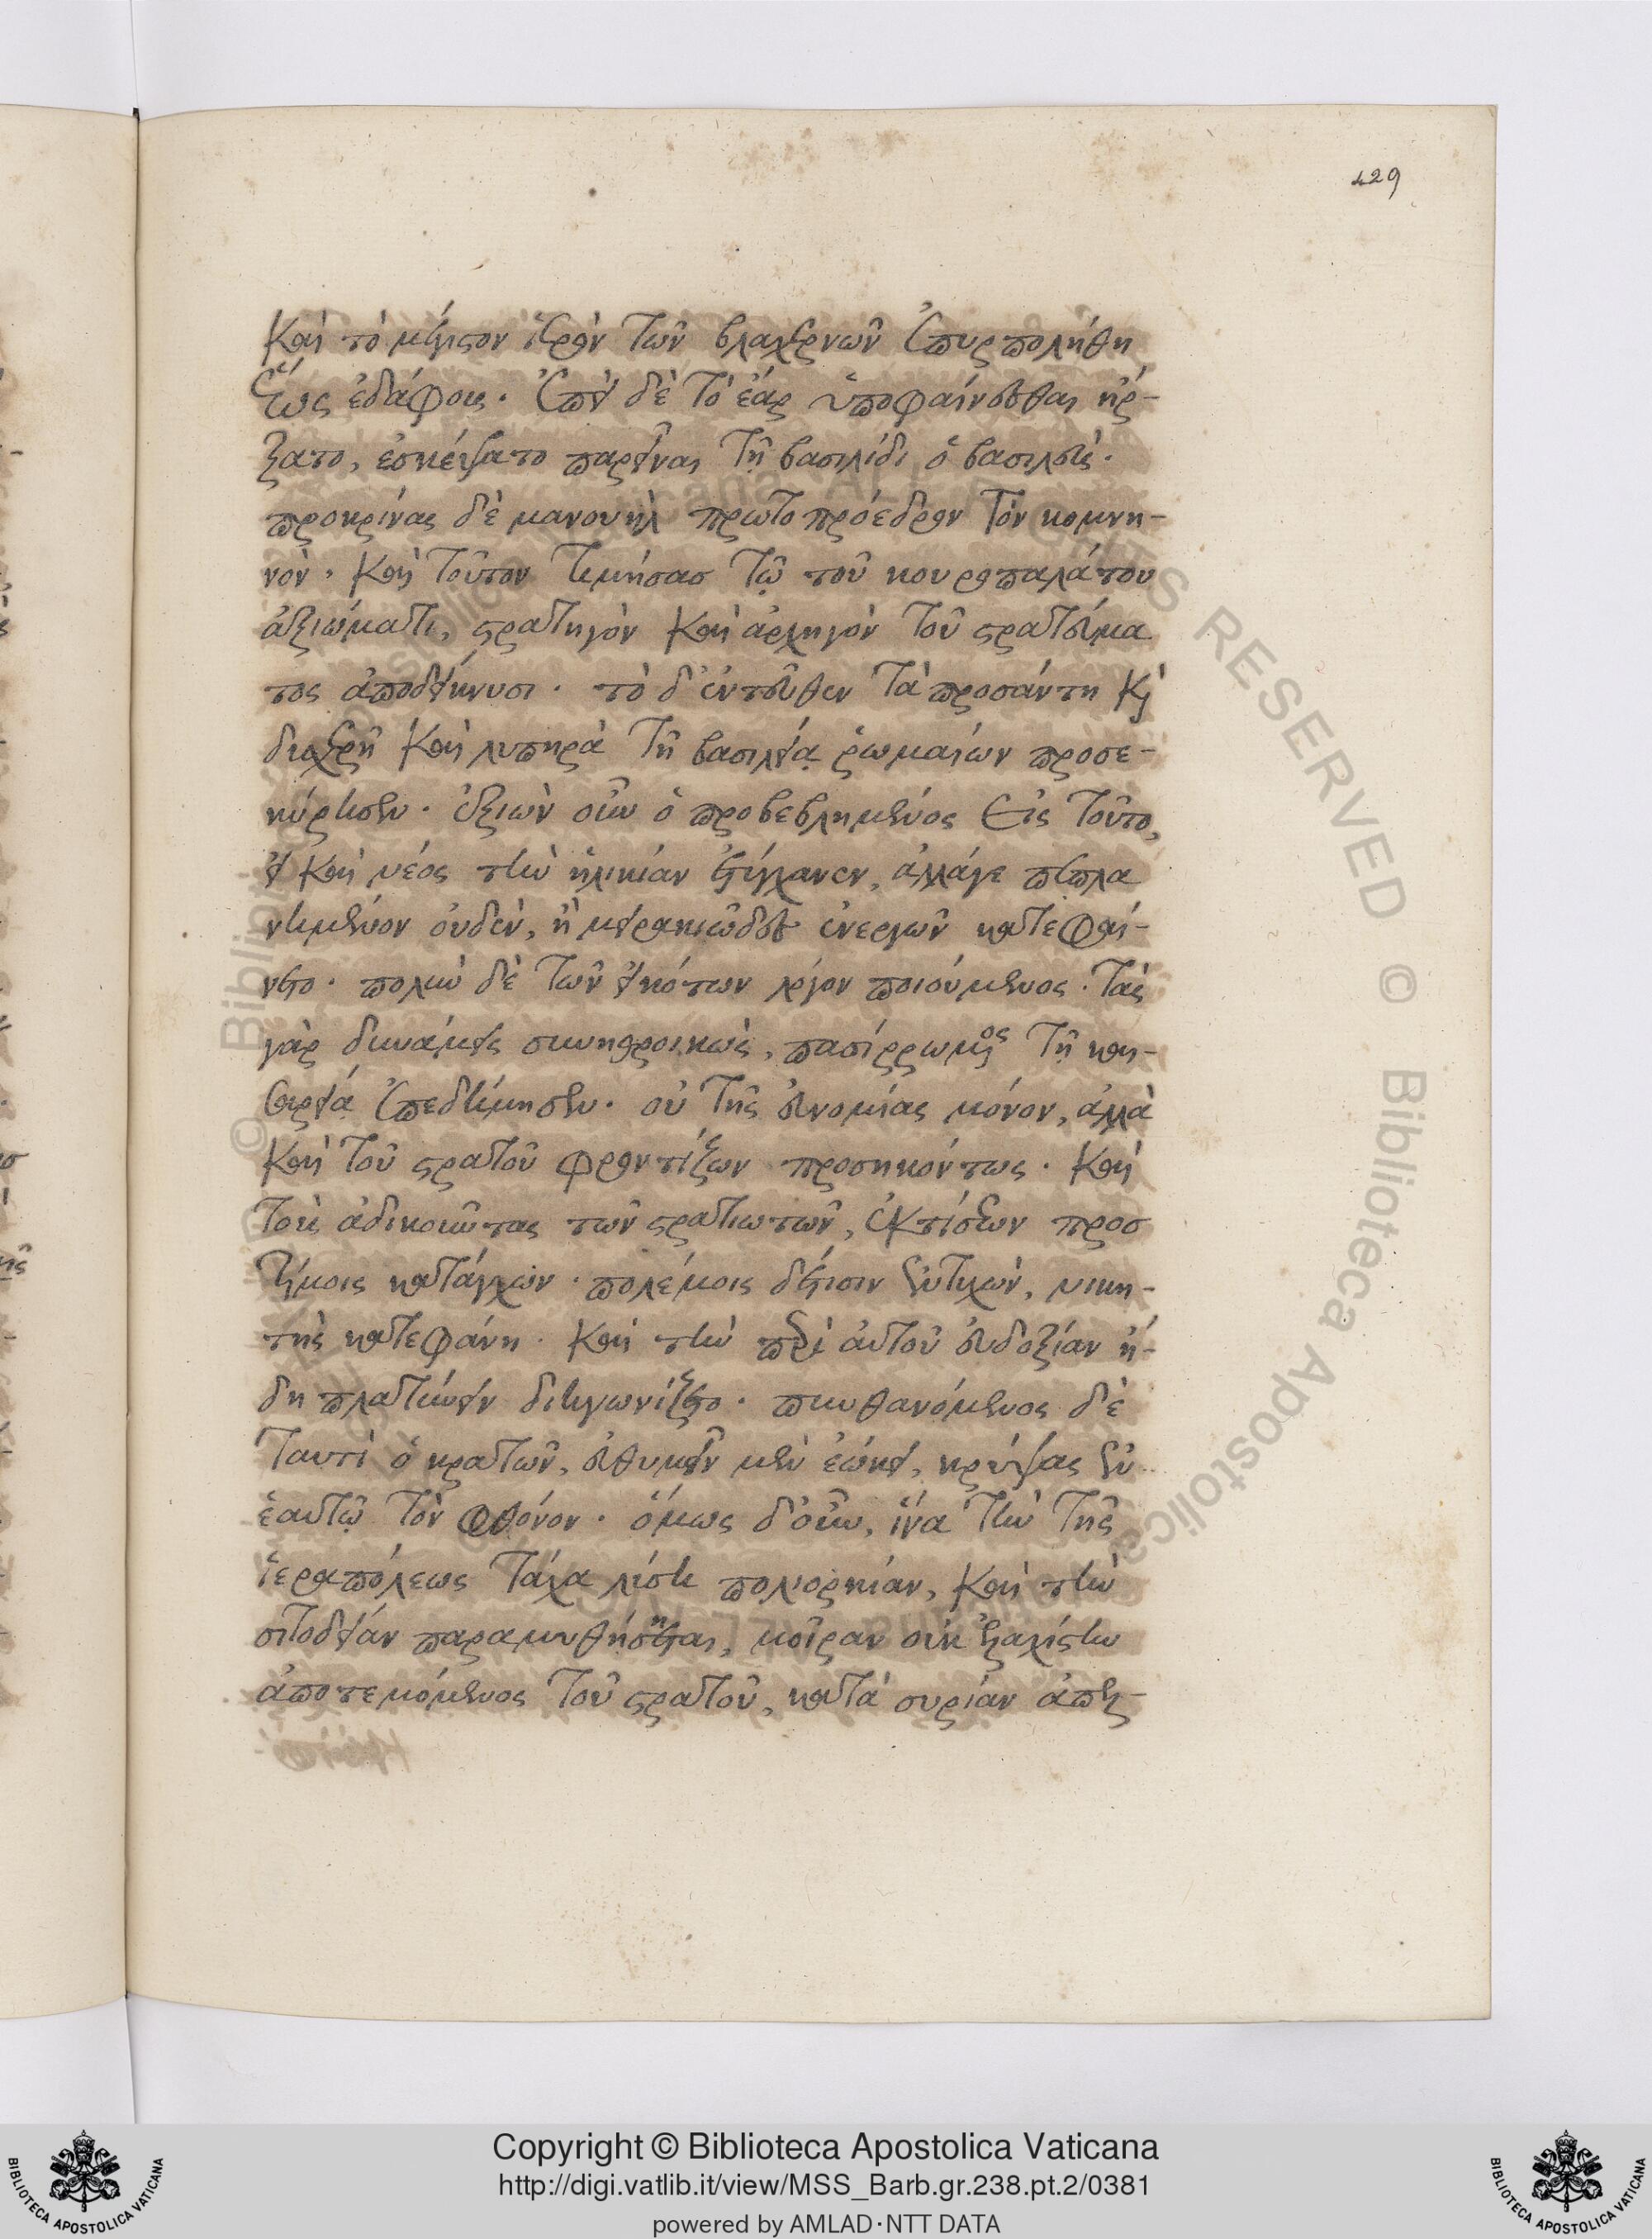 429
καὶ τὸ μέγιστον ἱερὸν τῶν βλαχερνῶν ἐπυρπολήθη
ἕως ἐδάφους. ἐπεὶ δὲ τὸ ἔαρ ὑποφαίνεσθαι ἤρ-
ξατο, ἐσκέψατο παρεῖναι τῇ βασιλίδι ὁ βασιλεύς.
προκρίνας δὲ μανουὴλ πρωτοπρόεδρον τὸν κομνη-
νὸν, καὶ τοῦτον τιμήσας τῷ τοῦ κουροπαλάτου
ἀξιώματι, στρατηγὸν καὶ ἀρχηγὸν τοῦ στρατεύμα
τος ἀποδείκνυσι. τὸ δ' ἐντεῦθεν τὰ προσάντη καὶ
δυσχερῆ καὶ λυπηρὰ τῇ βασιλείᾳ ῥωμαίων προσε-
κύρησεν. ἐξιὼν οὖν ὁ προβεβλημένος εἰς τοῦτο,
εἰ καὶ νέος τὴν ἡλικίαν ἐτύγχανεν, ἀλλάγε πεπλα
νημένον οὐδὲν, ἢ μειρακιῶδες ἐνεργῶν κατεφαί-
νετο. πολὺν δὲ τῶν εἰκότων λόγον ποιούμενος. τὰς
γὰρ δυνάμεις συνηθροικὼς, πασίρρωμος τῇ και-
σαρείᾳ ἐπεδήμησεν. οὐ τῆς εὐνομίας μόνον, ἀλλὰ
καὶ τοῦ στρατοῦ φροντίζων προσηκόντως. καὶ
τοὺς ἀδικοῦντας τῶν στρατιωτῶν, ἐκτίσεων προσ
τίμοις κατάγχων. πολέμοις δέτισιν ἐντυχὼν, νικη-
τὴς κατεφάνη. καὶ τὴν περὶ αὐτοῦ εὐδοξίαν ἤ-
δη πλατύνειν διηγωνίζετο. πυνθανόμενος δὲ
ταυτὶ ὁ κρατῶν, εὐθυμεῖν μὲν ἐώκει, κρύψας ἐν
ἑαυτῷ τὸν φθόνον. ὅμως δ' οὖν, ἵνα τὴν τῆς
ἱεραπόλεως τάχα λύσῃ πολιορκίαν, καὶ τὴν
σιτοδείαν παραμυθήσηται, μοῖραν οὐκ ἐλαχίστην
ἀποτεμόμενος τοῦ στρατοῦ, κατὰ συρίαν ἀπελ-
Copyright © Biblioteca Apostolica Vaticana
http://digi.vatlib.it/view/MSS_Barb.gr.238.pt.2/0381
powered by AMLAD·NTT DATA
BIBLIOTECA APOSTOLICA VATICANA
BIBLIOTECA APOSTOLICA VATICANA